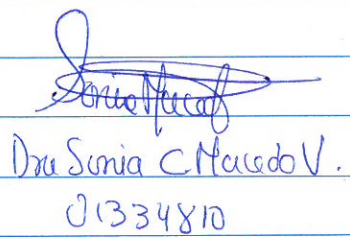 Sonia Macedo
Dra Sonia C Macedo V.
01334810